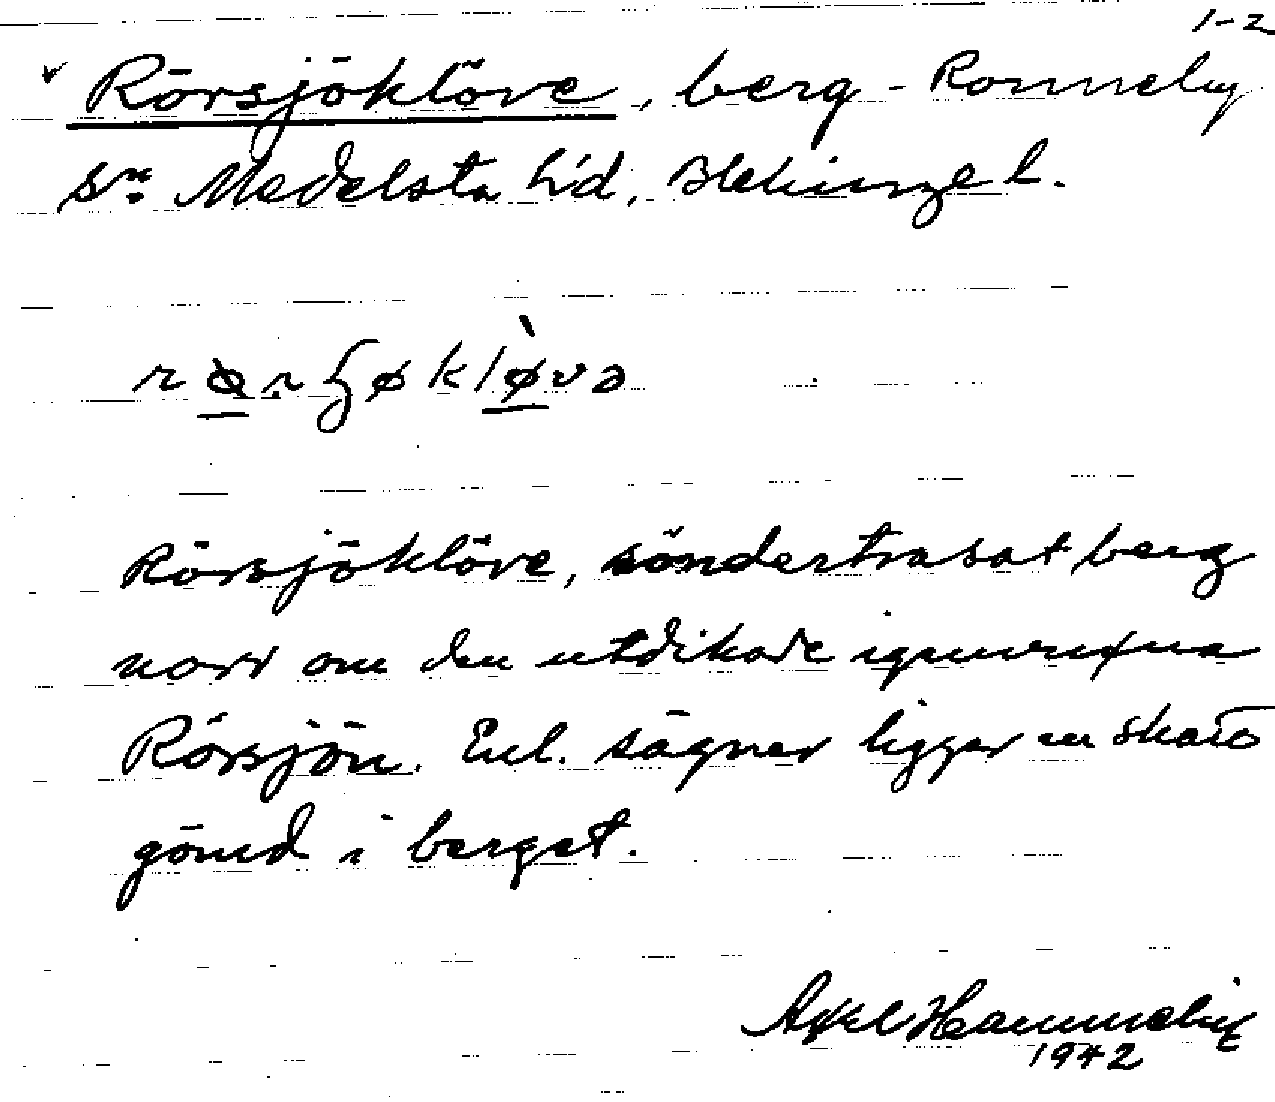 1-2
Rörsjöklöve, berg - Ronneby
Sn. Medelsta h'd, Blekinge l.
Rörsjöklöve, söndertrasat berg
norr om den utdikade igenvuxna
Rörsjön. Enl. sägner ligger en skatt
gömd i berget.
Axel
1942